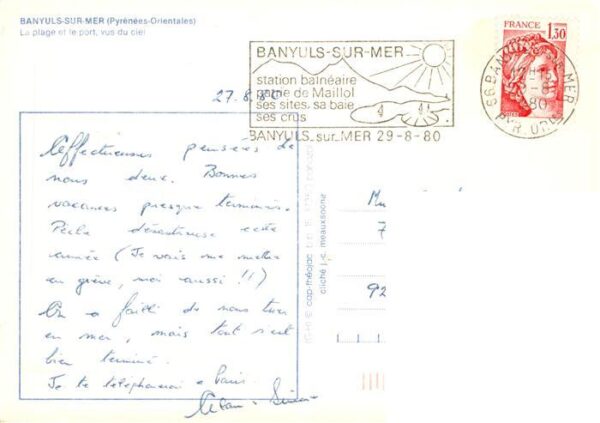 BANYULS-SUR-MER (Pyrénées-Orientales)
La plage et le port, vus du ciel
BANYULS-SUR-MER
station balnéaire
patrie de Maillol
ses sites, sa baie
ses crus
BANYULS sur MER 29-8-80
FRANCE 1,30
66 BANYULS S MER
80
PYR. OR.
27.8.80
Affectueuses pensées de
nous deux. Bonnes
vacances presque terminées.
Pêche désastreuse cette
année (Je vais me mettre
en grève, moi aussi !!)
On a failli de nous tuer
en mer, mais tout s'est
bien terminé.
Je te téléphonerai à Paris.
cap-théojac
cliché j.-c. meauxsoone
7
92